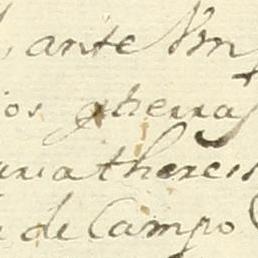 , ante Vm
ios gherras
aria theres
de Campo